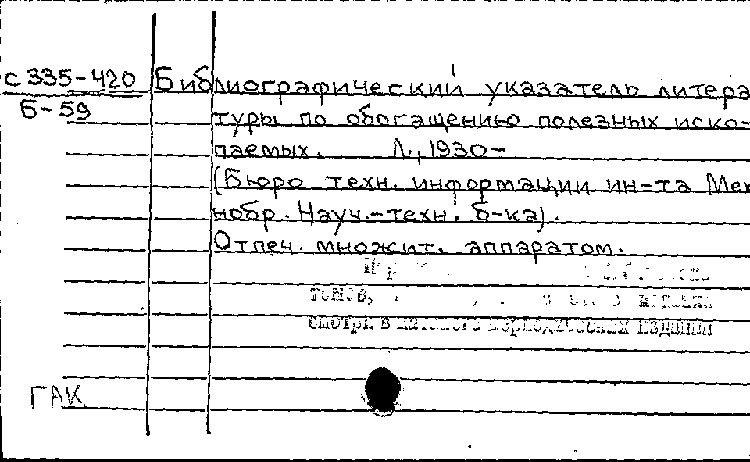 с 335-420 Библиографический указатель литера
Б-59 туры по обогащению полезных иско-
паемых. Л., 1930-
(Бюро техн. информации ин-та Мех
нобр. Науч.-техн. б-ка).
Отпеч. множит. аппаратом.
томов,
смотри в каталоге периодических изданий
ГАК